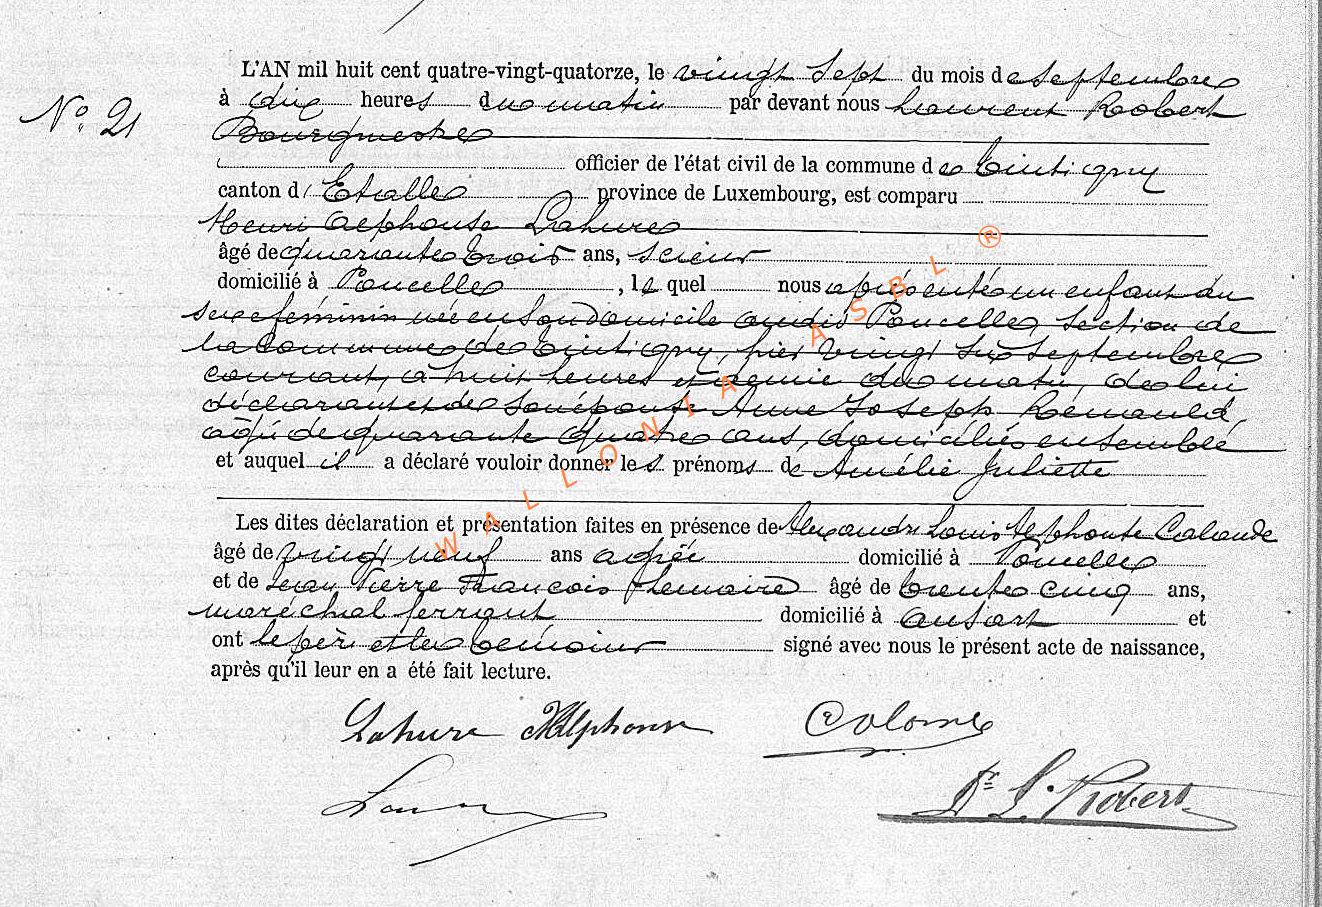 L'AN mil huit cent quatre-vingt-quatorze, le vingt sept du mois de septembre
No. 21
à dix heures du matin par devant nous Laurent Robert
Bourgmestre
officier de l'état civil de la commune de Tintigny
canton d'Etalle province de Luxembourg, est comparu
Henri Alphonse Lahure
âgé de quarante trois ans, scieur
domicilié à Poncelle, lequel nous a présenté un enfant du
sexe féminin née en son domicile audit Poncelle, section de
la commune de Tintigny, hier vingt six septembre
courant, à huit heures et demie du matin, de lui
déclarant et de son épouse Anne Joseph Rémauld,
agé de quarante quatre ans, domiciliés ensemble
et auquel il a déclaré vouloir donner les prénoms de Amélie Juliette
Les dites déclaration et présentation faites en présence de Alexandre Louis Alphonse
âgé de vingt neuf ans domicilié à Poncelle
et de Jean Pierre François Lemaire âgé de trente cinq ans,
maréchal ferrant domicilié à Ansart et
ont le père et les témoins signé avec nous le présent acte de naissance,
après qu'il leur en a été fait lecture.
Lahure Alphonse
Dr L. Robert
WALLONIA ASBL ®